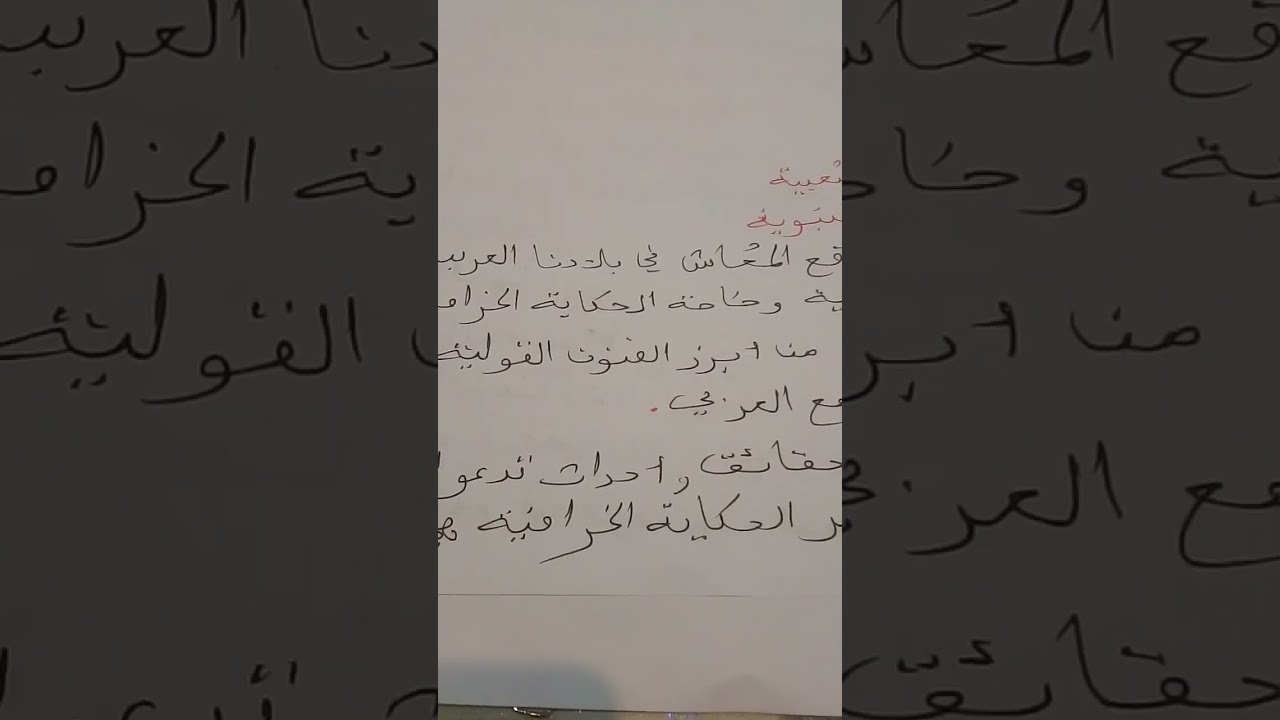 شعبية
بنوية
قع المعاش في بلادنا العربـ
ية وخاصة الحكاية الخرافـ
منا ابرز الفنون القولية
ـع العربي.
حقائق واحداث تدعوا
ـر الحكاية الخرافية بهـ